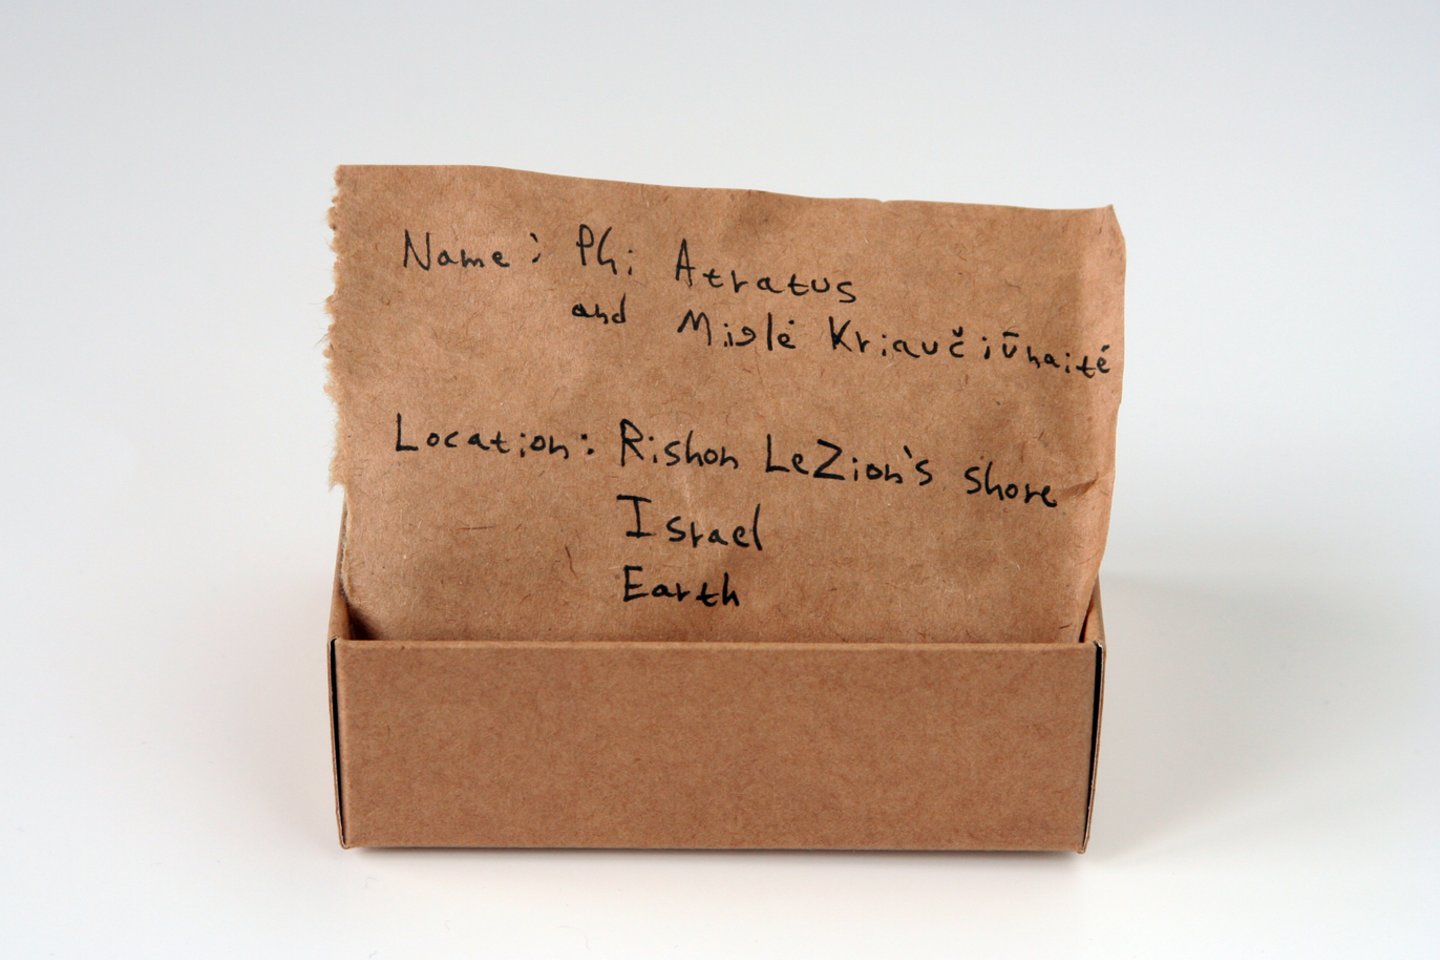 Name: Phi Atratus
and Mislė Kriaučiūnaitė
Location: Rishon LeZion's shore
Israel
Earth